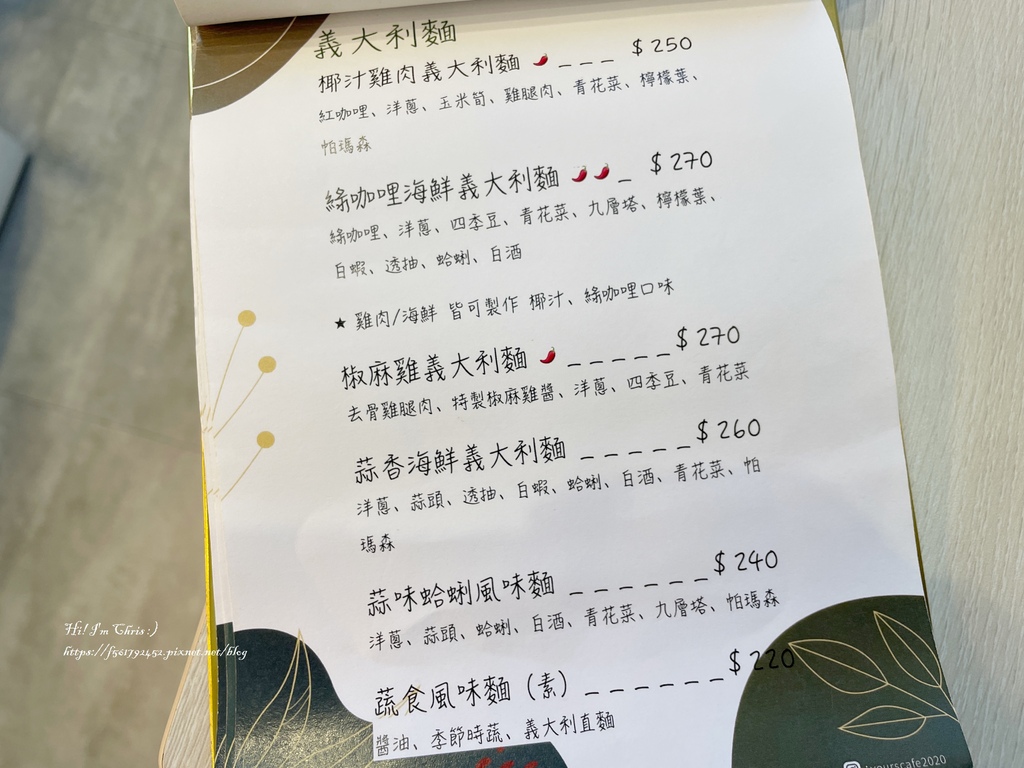 義大利麵
椰汁雞肉義大利麵 _ _ _ $250
紅咖哩、洋蔥、玉米筍、雞腿肉、青花菜、檸檬葉、
帕瑪森
綠咖哩海鮮義大利麵 _ $270
綠咖哩、洋蔥、四季豆、青花菜、九層塔、檸檬葉、
白蝦、透抽、蛤蜊、白酒
★ 雞肉/海鮮 皆可製作 椰汁、綠咖哩口味
椒麻雞義大利麵 _ _ _ _ _ $270
去骨雞腿肉、特製椒麻雞醬、洋蔥、四季豆、青花菜
蒜香海鮮義大利麵 _ _ _ _ _ $260
洋蔥、蒜頭、透抽、白蝦、蛤蜊、白酒、青花菜、帕
瑪森
蒜味蛤蜊風味麵 _ _ _ _ _ _ $240
洋蔥、蒜頭、蛤蜊、白酒、青花菜、九層塔、帕瑪森
蔬食風味麵（素）_ _ _ _ _ _ $220
醬油、季節時蔬、義大利直麵
Hi! I'm Chris :)
https://f561791452.pixnet.net/blog